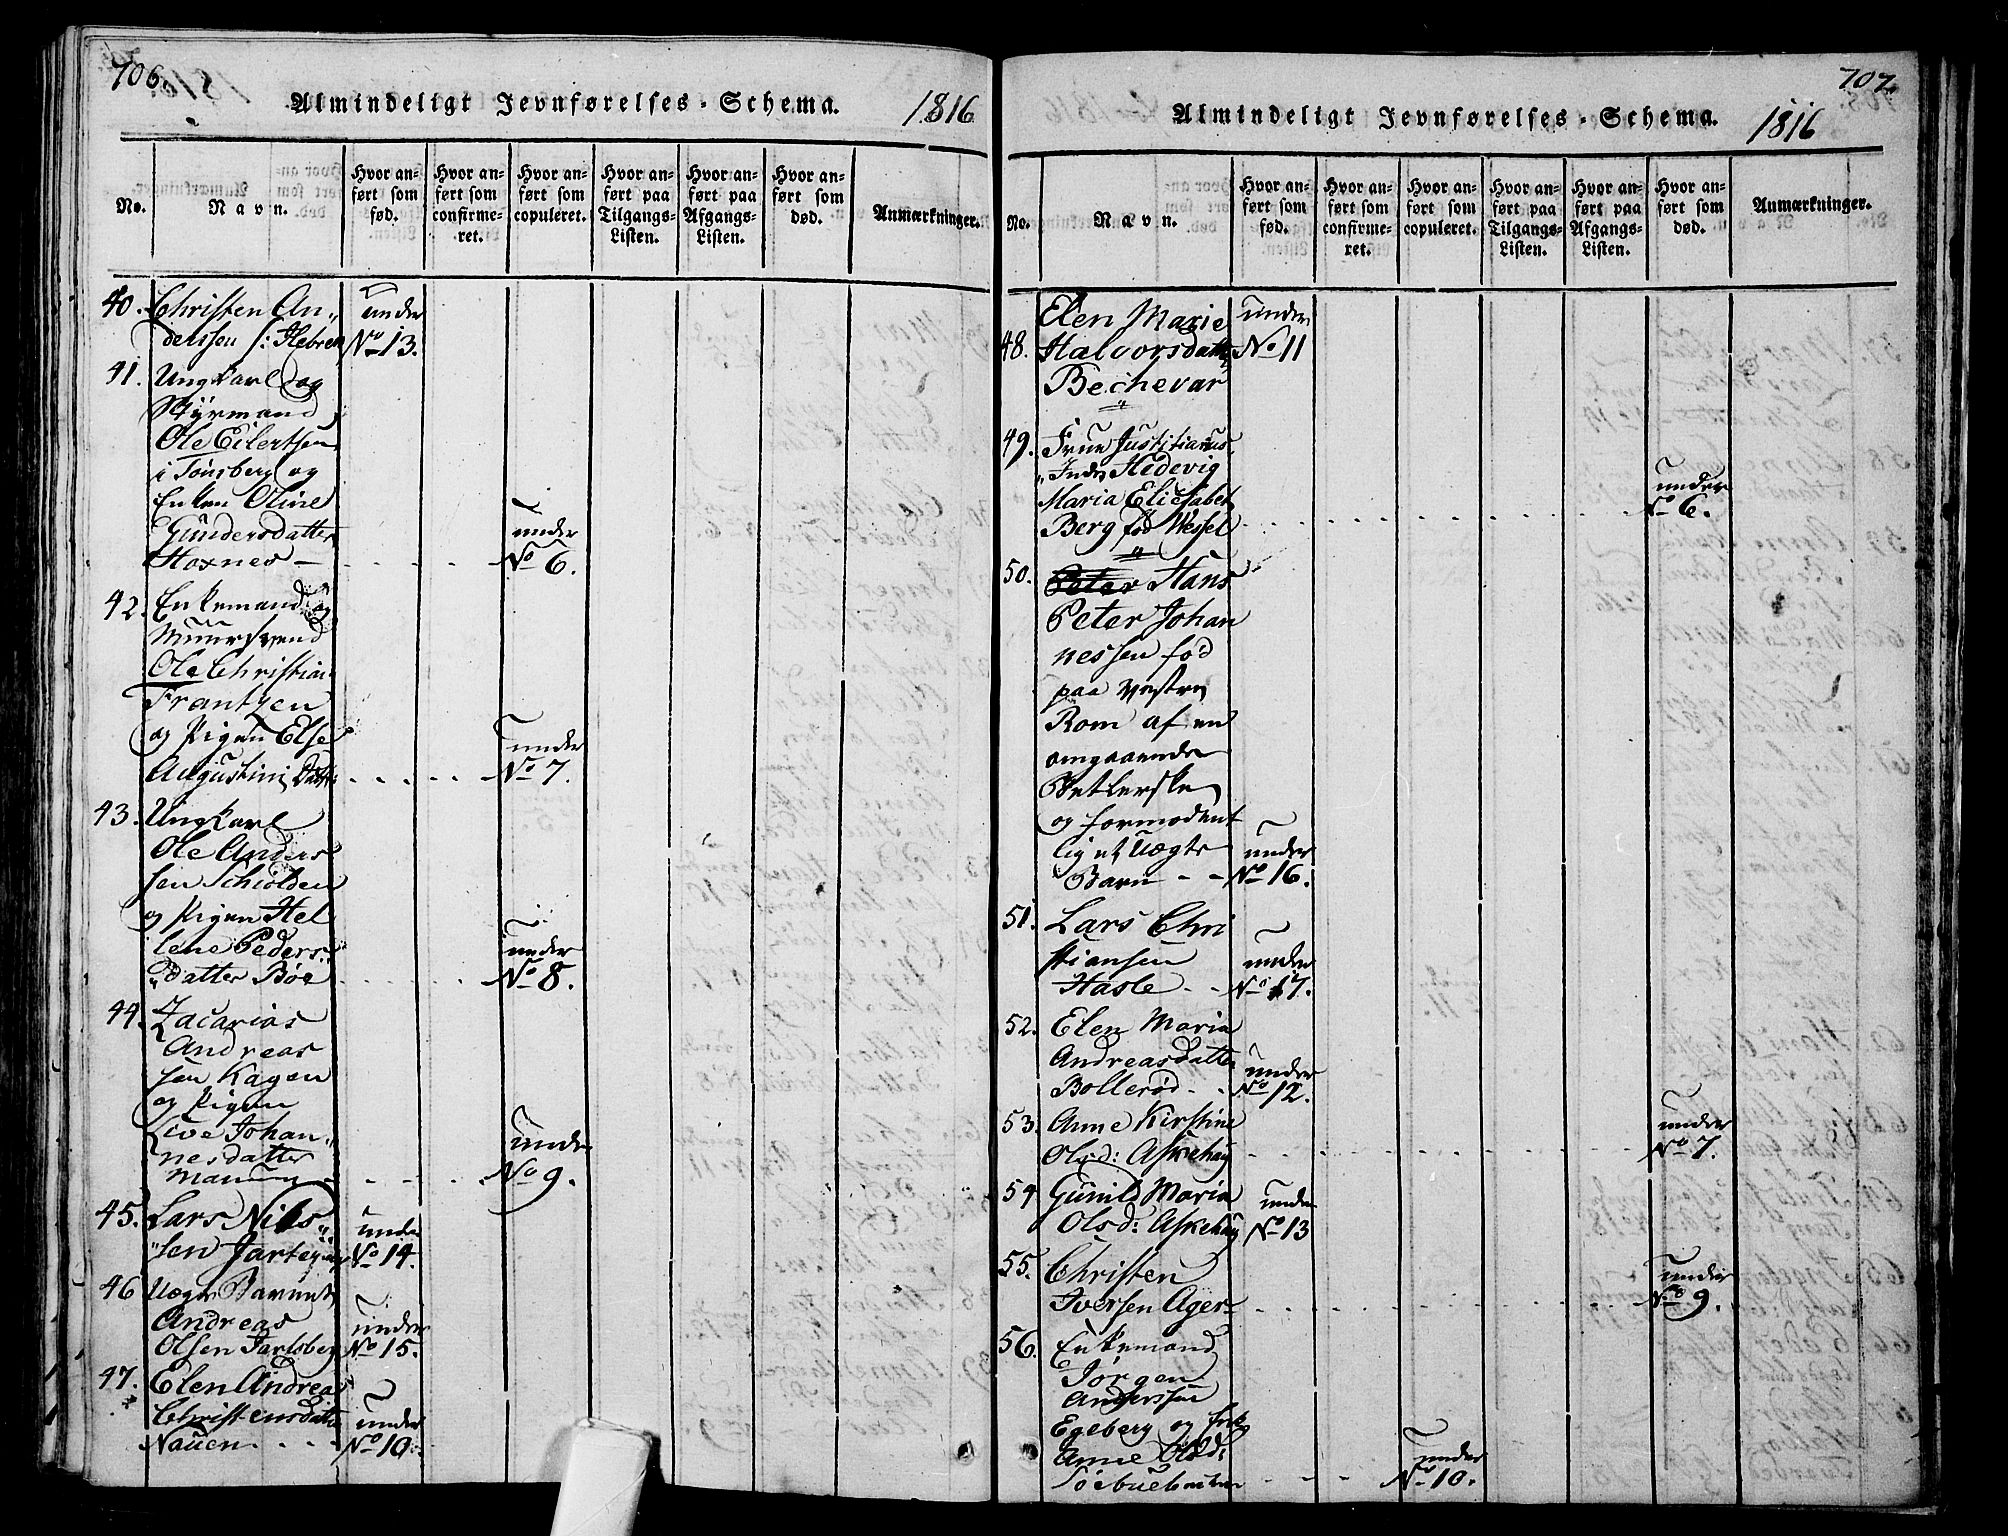 706.
Almindeligt Jevnførelses-Schema.
1816
No.
Navn.
Hvor an-
ført som
fød.
Hvor an-
ført som
confirme-
ret.
Hvor an-
ført som
copuleret.
Hvor an-
ført paa
Tilgangs-
Listen.
Hvor an-
ført paa
Afgangs-
Listen.
Hvor an-
ført som
død.
Anmærkninger.
40. Christen An„ under
derssen s: Hebrek No 13.
41. Ungkarl og
Styrmand
Ole Eilertsen
i Tønsberg og
Enken Oline
Gundersdatter under
Hoxnes No 6.
42. Enkemand og
Muursvend
Ole Christian
Frantzen
og Pigen Else under
Augustini Datter No 7.
43. Ungkarl
Ole Anders
sen Schiolden
og Pigen Hel
lene Peders„ under
„datter Bøe No 8.
44. Zacarias
Andreas
sen Kagen
og Pigen
Live Johan„ under
nesdatter
No 9.
45. Lars Nils„ under
„sen No 14.
46 Uægte Barnet
Andreas under
Olsen Jarlsberg No 15.
47. Elen Andrea
Christensdatter under
Nauen No 10.
707.
Almindeligt Jevnførelses-Schema.
1816
No.
Navn.
Hvor an-
ført som
fød.
Hvor an-
ført som
confirme-
ret.
Hvor an-
ført som
copuleret.
Hvor an-
ført paa
Tilgangs-
Listen.
Hvor an-
ført paa
Afgangs-
Listen.
Hvor an-
ført som
død.
Anmærkninger.
Elen Marie under
48. Halvorsdatter No 11
Bechevar
49. Frue Justitiarus
Hedevig
Maria Elisabet under
Berg fød Wessel No 6.
50. Peter Hans
Peter Johan
nessen fød
paa Vestre
Rom af en
omgaaende
Betlerske
og formodent
lig et Uægte under
Barn No 16.
51. Lars Chri
stiansen under
Hasle No 17.
52. Elen Maria
Andreasdatter under
Bollerød No 12.
53. Anne Kirstine under
Olsd: Askehaug No 7.
54 Gunild Maria under
Olsd: Askehaug No 13
55. Christen under
Iversen Ager No 9.
56. Enkemand
Jørgen
Anderssen
Egeberg og Enke
Anne Olsd: under
No 10.